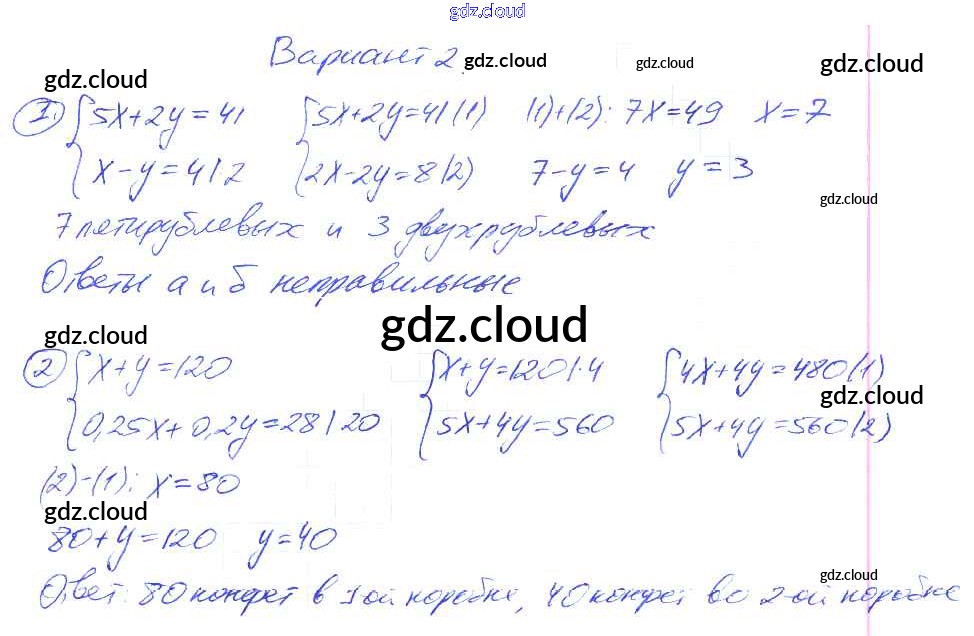 gdz.cloud
Вариант 2. gdz.cloud gdz.cloud gdz.cloud
gdz.cloud
1. {5x+2y=41 {5x+2y=41 (1) (1)+(2): 7x=49 x=7
{x-y=4 |·2 {2x-2y=8 (2) 7-y=4 y=3
gdz.cloud
7 пятирублевых и 3 двухрублевых
Ответы а и б неправильные
gdz.cloud
gdz.cloud
2 {x+y=120 {x+y=120 |·4 {4x+4y=480 (1)
gdz.cloud
{0,25x+0,2y=28 |·20 {5x+4y=560 {5x+4y=560 (2)
(2)-(1): x=80
gdz.cloud
80+y=120 y=40
gdz.cloud
Ответ: 80 конфет в 1-ой коробке, 40 конфет во 2-ой коробке